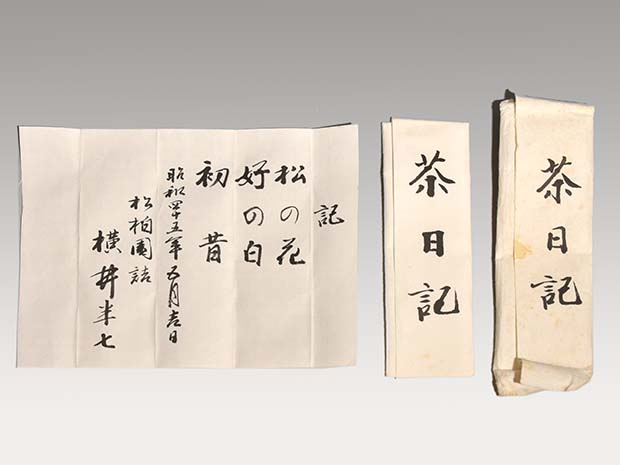 記
松の花
好の白
初昔
昭和四十五年五月吉日
松柏園詰
横井半七
茶日記
茶日記